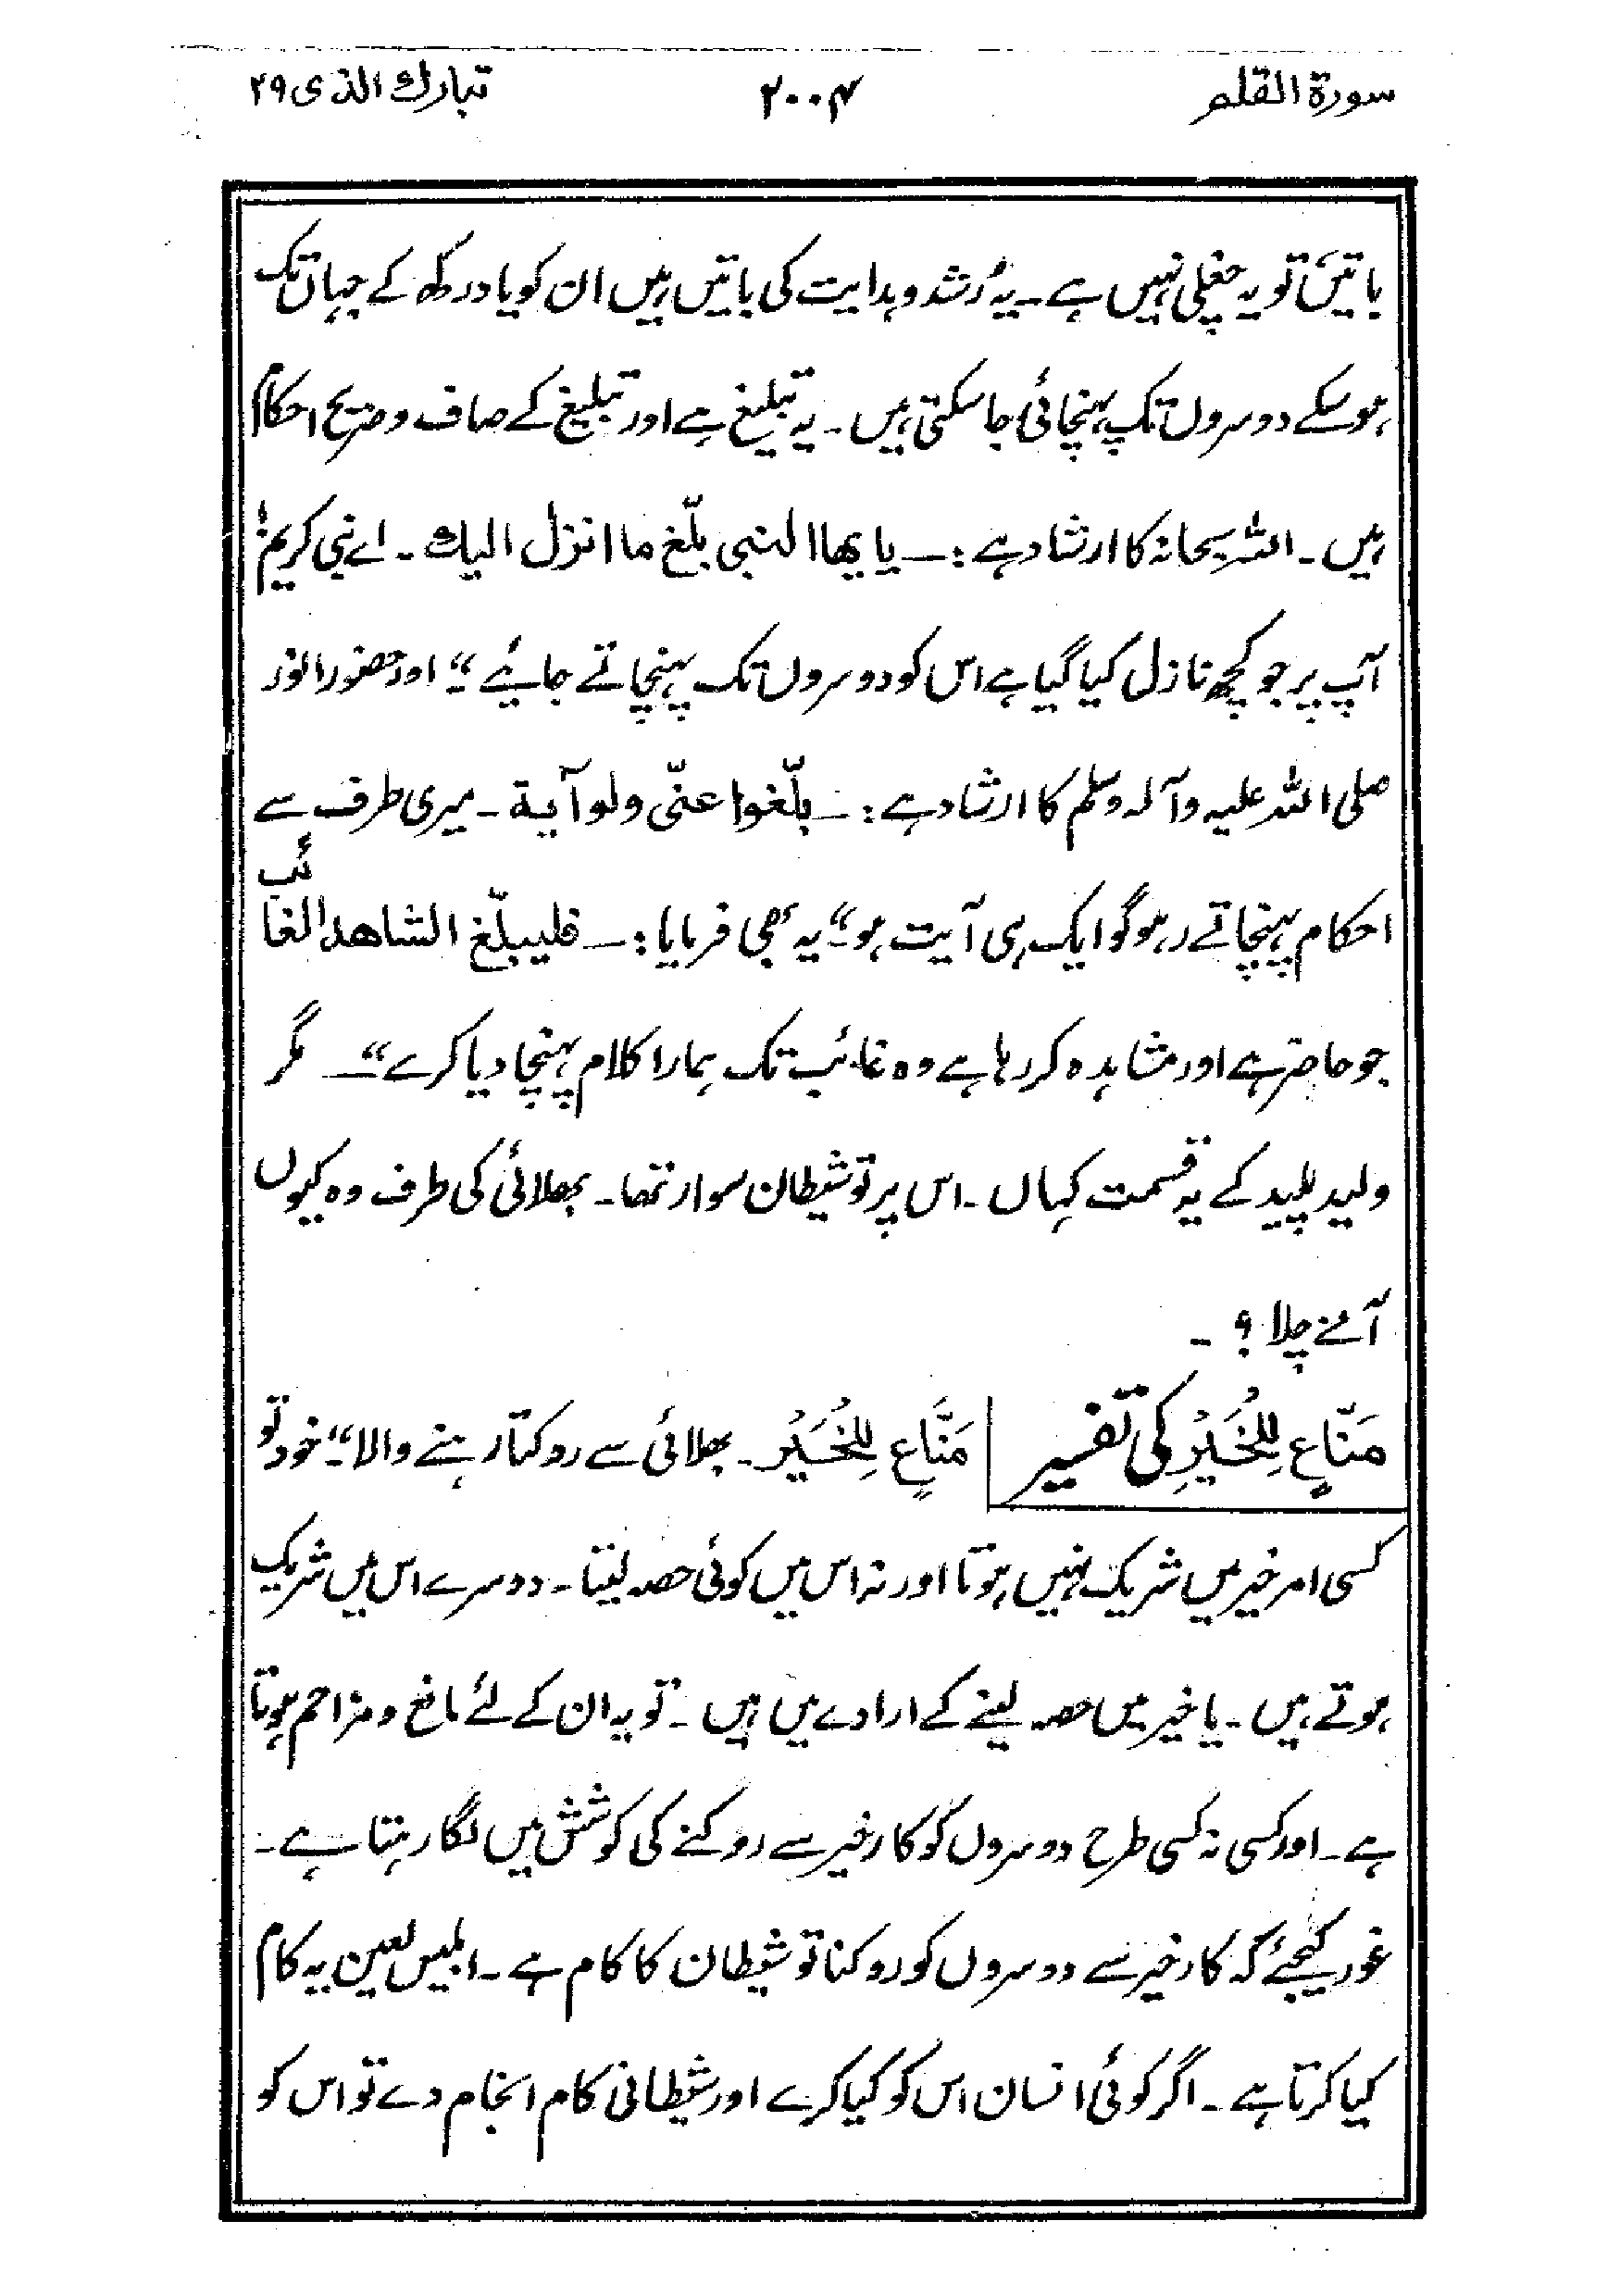 سورۃ القلم ۲۰۰۴ تبارك الذی ۲۹
باتیں تو یہ چغلی نہیں ہے ۔ یہ رُشد و ہدایت کی باتیں ہیں ان کو یاد رکھ کے جہاں تک
ہو سکے دوسروں تک پہنچائی جا سکتی ہیں ۔ یہ تبلیغ ہے اور تبلیغ کے صاف و صریح احکام
ہیں ۔ اللہ سبحانہ کا ارشاد ہے :۔ یا یھا النبی بلّغ ما انزل الیك ۔ اے نبی کریمؐ
آپ پر جو کچھ نازل کیا گیا ہے اس کو دوسروں تک پہنچاتے جائیے “۔ اور حضور انور
صلی اللہ علیہ وآلہ وسلم کا ارشاد ہے :۔ بلّغوا عنّی ولو آیة ۔ میری طرف سے
احکام پہنچاتے رہو گو ایک ہی آیت ہو “۔ یہ بھی فرمایا :۔ فلیبلّغ الشاھد الغائب
جو حاضر ہے اور مشاہدہ کر رہا ہے وہ غائب تک ہمارا کلام پہنچا دیا کرے “۔ مگر
ولید پلید کے یہ قسمت کہاں ۔ اس پر تو شیطان سوار تھا ۔ بھلائی کی طرف وہ کیوں
آنے چلا ؟ ۔
مَنَّاعٍ لِلْخَیْرِ کی تفسیر مَنَّاعٍ لِلْخَیْرِ ۔ بھلائی سے روکتا رہنے والا “۔ خود تو
کسی امر خیر میں شریک نہیں ہوتا اور نہ اس میں کوئی حصہ لیتا ۔ دوسرے اس میں شریک
ہوتے ہیں ۔ یا خیر میں حصہ لینے کے ارادے میں ہیں ۔ تو یہ ان کے لئے مانع و مزاحم ہوتا
ہے ۔ اور کسی نہ کسی طرح دوسروں کو کار خیر سے روکنے کی کوشش میں لگا رہتا ہے ۔
غور کیجئے کہ کار خیر سے دوسروں کو روکنا تو شیطان کا کام ہے ۔ ابلیس لعین یہ کام
کیا کرتا ہے ۔ اگر کوئی انسان اس کو کیا کرے اور شیطانی کام انجام دے تو اس کو